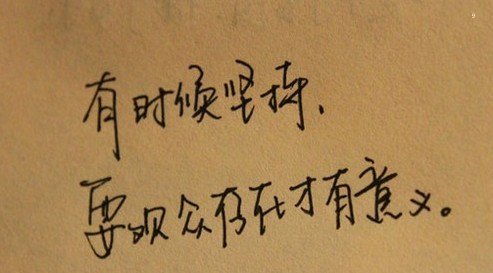 有时候坚持、
要观众存在才有意义。
9